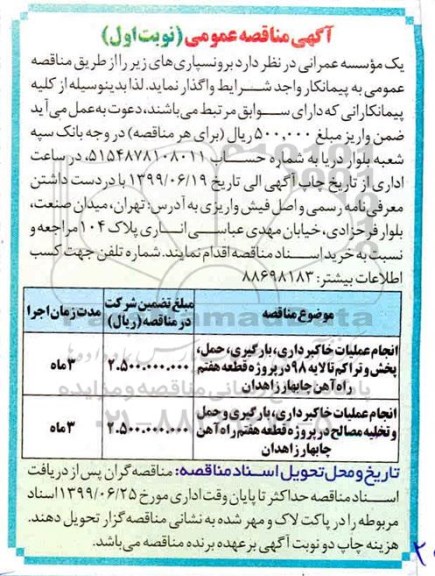 آگهی مناقصه عمومی (نوبت اول)
یک مؤسسه عمرانی در نظر دارد برونسپاری‌های زیر را از طریق مناقصه
عمومی به پیمانکار واجد شرایط واگذار نماید. لذا بدینوسیله از کلیه
پیمانکارانی که دارای سوابق مرتبط می‌باشند، دعوت به عمل می‌آید
ضمن واریز مبلغ ۵۰۰,۰۰۰ ریال (برای هر مناقصه) در وجه بانک سپه
شعبه بلوار دریا به شماره حساب ۵۱۵۴۸۷۸۱۰۸۰۱۱، در ساعت
اداری از تاریخ چاپ آگهی الی تاریخ ۱۳۹۹/۰۶/۱۹ با در دست داشتن
معرفی‌نامه رسمی و اصل فیش واریزی به آدرس: تهران، میدان صنعت،
بلوار فرحزادی، خیابان مهدی عباسی اناری پلاک ۱۰۴ مراجعه و
نسبت به خرید اسناد مناقصه اقدام نمایند. شماره تلفن جهت کسب
اطلاعات بیشتر: ۸۸۶۹۸۱۸۳
موضوع مناقصه | مبلغ تضمین شرکت در مناقصه (ریال) | مدت زمان اجرا
انجام عملیات خاکبرداری، بارگیری، حمل،
پخش و تراکم تا لایه ۹۸ در پروژه قطعه هفتم
راه آهن چابهار زاهدان
۲.۵۰۰.۰۰۰.۰۰۰
۳ ماه
انجام عملیات خاکبرداری، بارگیری و حمل
و تخلیه مصالح در پروژه قطعه هفتم راه آهن
چابهار زاهدان
۲.۵۰۰.۰۰۰.۰۰۰
۳ ماه
تاریخ و محل تحویل اسناد مناقصه: مناقصه‌گران پس از دریافت
اسناد مناقصه حداکثر تا پایان وقت اداری مورخ ۱۳۹۹/۰۶/۲۵ اسناد
مربوطه را در پاکت لاک و مهر شده به نشانی مناقصه‌گزار تحویل دهند.
هزینه چاپ دو نوبت آگهی بر عهده برنده مناقصه می‌باشد.